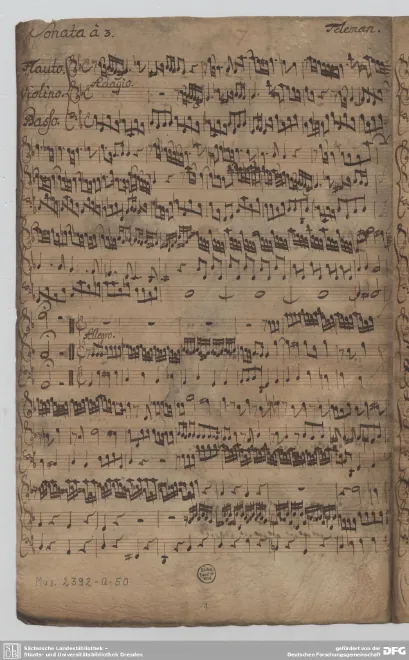 Sonata â 3.
Teleman.
Flauto.
Adagio.
Violino.
Basso.
Allegro.
Mus. 2392-Q-50
1
Sächsische Landesbibliothek –
Staats- und Universitätsbibliothek Dresden
gefördert von der
Deutschen Forschungsgemeinschaft
DFG